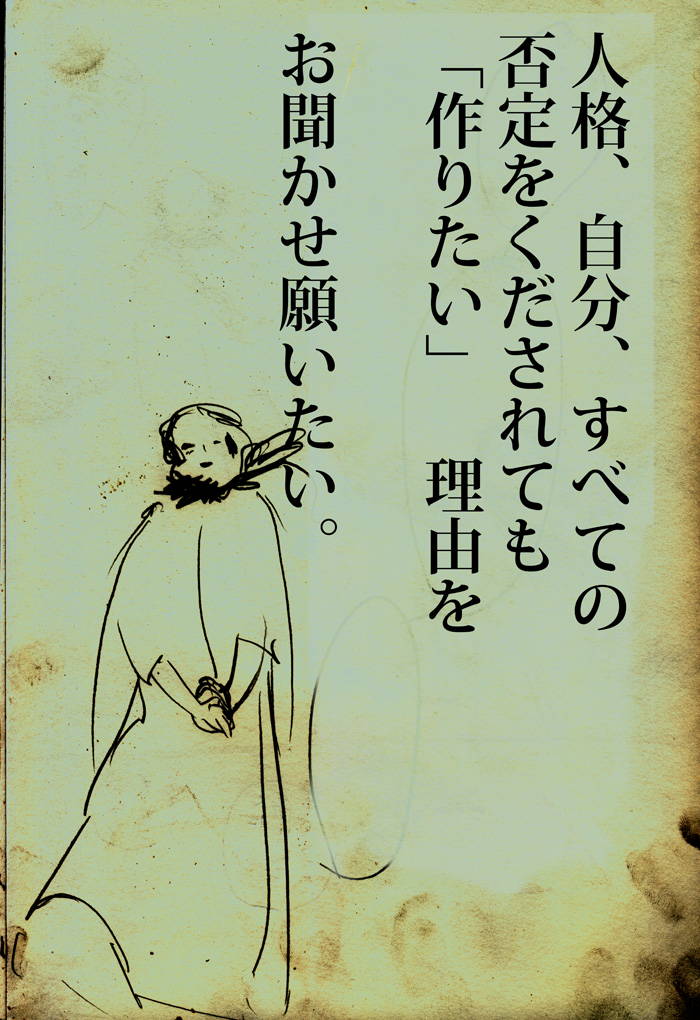 人格、自分、すべての
否定をくだされても
「作りたい」　理由を
お聞かせ願いたい。